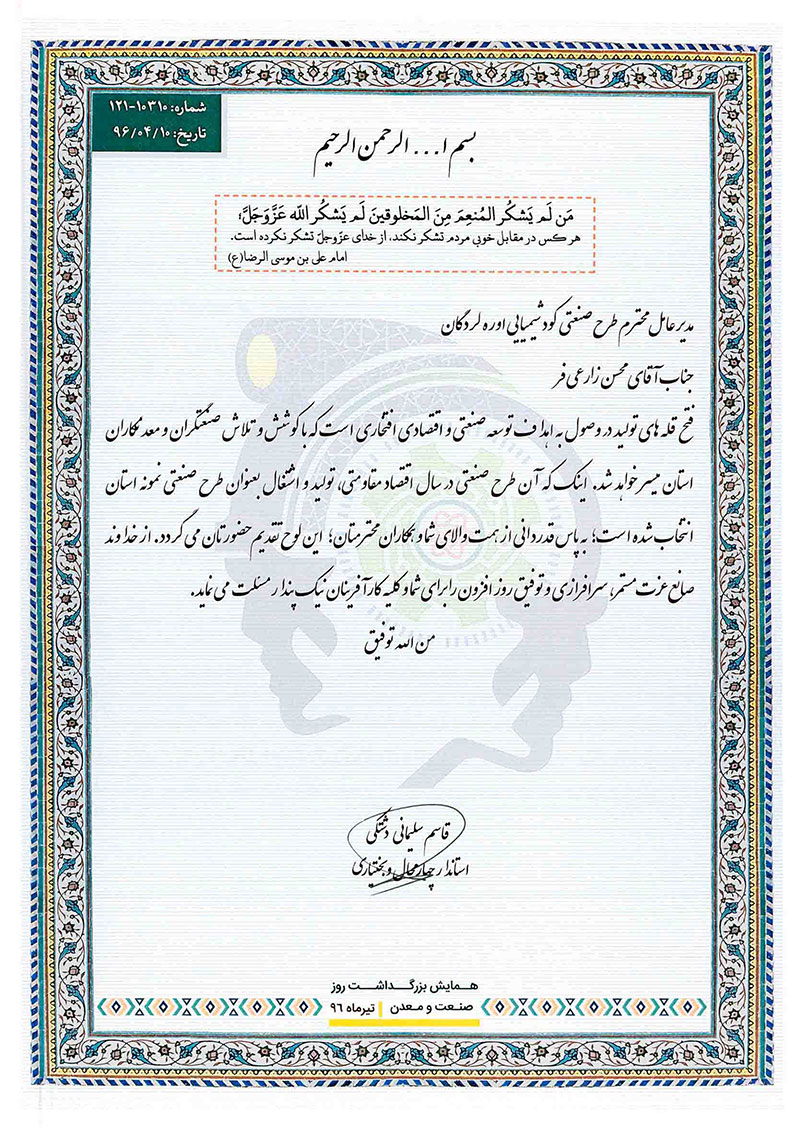 شماره: ۱۰۳۱۰-۱۲۱
تاریخ: ۹۶/۰۴/۱۰
بسم ا... الرحمن الرحیم
مَن لَم یَشکُر المُنعِمَ مِنَ المَخلوقینَ لَم یَشکُر اللّه عَزَّوَجَلَّ؛
هر کس در مقابل خوبی مردم تشکر نکند، از خدای عزّوجلّ تشکر نکرده است.
امام علی بن موسی الرضا(ع)
مدیر عامل محترم طرح صنعتی کود شیمیایی اوره لردگان
جناب آقای محسن زارعی فر
فتح قله های تولید در وصول به اهداف توسعه صنعتی و اقتصادی افتخاری است که با کوشش و تلاش صنعتگران و معدنکاران
استان میسر خواهد شد. اینک که آن طرح صنعتی در سال اقتصاد مقاومتی، تولید و اشتغال بعنوان طرح صنعتی نمونه استان
انتخاب شده است؛ به پاس قدردانی از همت والای شما و همکاران محترمتان؛ این لوح تقدیم حضورتان می گردد. از خداوند
صانع عزت مستمر، سرافرازی و توفیق روز افزون را برای شما و کلیه کارآفرینان نیک پندار مسئلت می نماید.
من الله توفیق
قاسم سلیمانی دشتکی
استاندار چهارمحال و بختیاری
همایش بزرگداشت روز
صنعت و معدن | تیرماه ۹۶